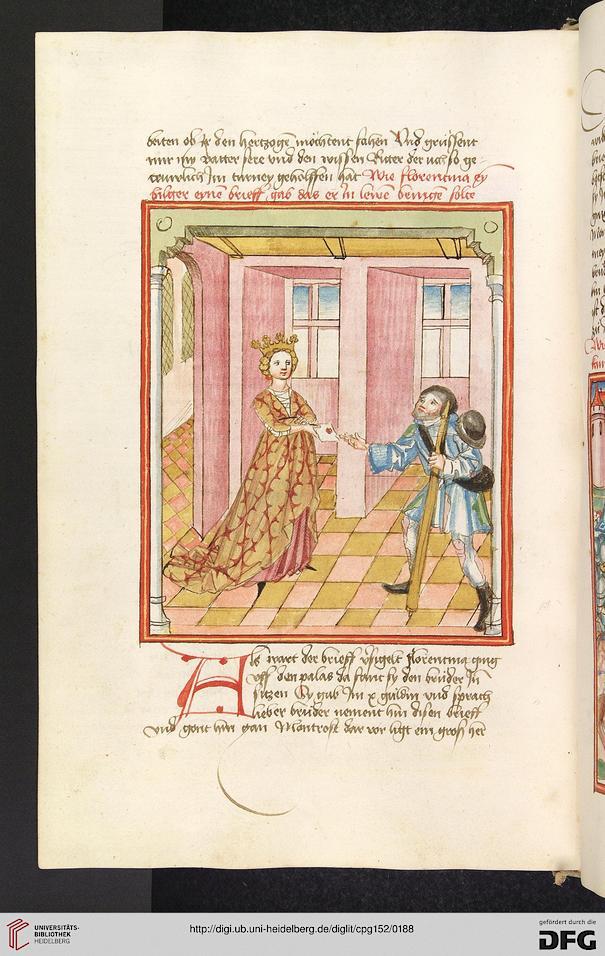 beiten ob er den hertzogen möchtent fahen Vnd grüssent
mir myn vatter sere vnd den wissen Ritter der üch so ge-
truwlich Im turney gehelffen hat Wie florentina ey
bilger eyne brieff gab das er In lewe bringe solte
Als wart der brieff v̈sigelt florentina ging
vff den palas da fant sy den brůder In
sitzen Sy gab Im x guldin vnd sprach
lieber brůder nement hin disen brieff
vnd gent hin gan Montrose dar vor ligt ein groß her
UNIVERSITÄTS-
BIBLIOTHEK
HEIDELBERG
http://digi.ub.uni-heidelberg.de/diglit/cpg152/0188
gefördert durch die
DFG